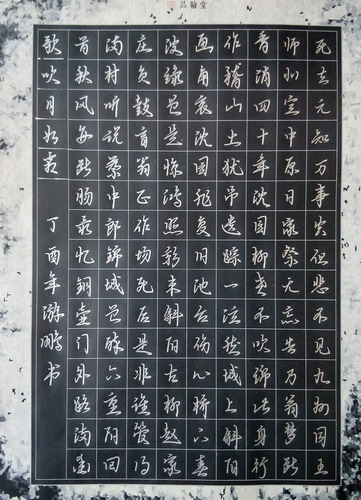 品翰堂
死去元知万事空但悲不见九州同王
师北定中原日家祭无忘告乃翁梦断
香消四十年沈园柳老不吹绵此身行
作稽山土犹吊遗踪一泫然城上斜阳
画角哀沈园非复旧池台伤心桥下春
波绿曾是惊鸿照影来斜阳古柳赵家
庄负鼓盲翁正作场死后是非谁管得
满村听说蔡中郎锦城曾醉六重阳回
首秋风每断肠最忆铜壶门外路满街
歌吹月如霜 丁酉年游鹏书